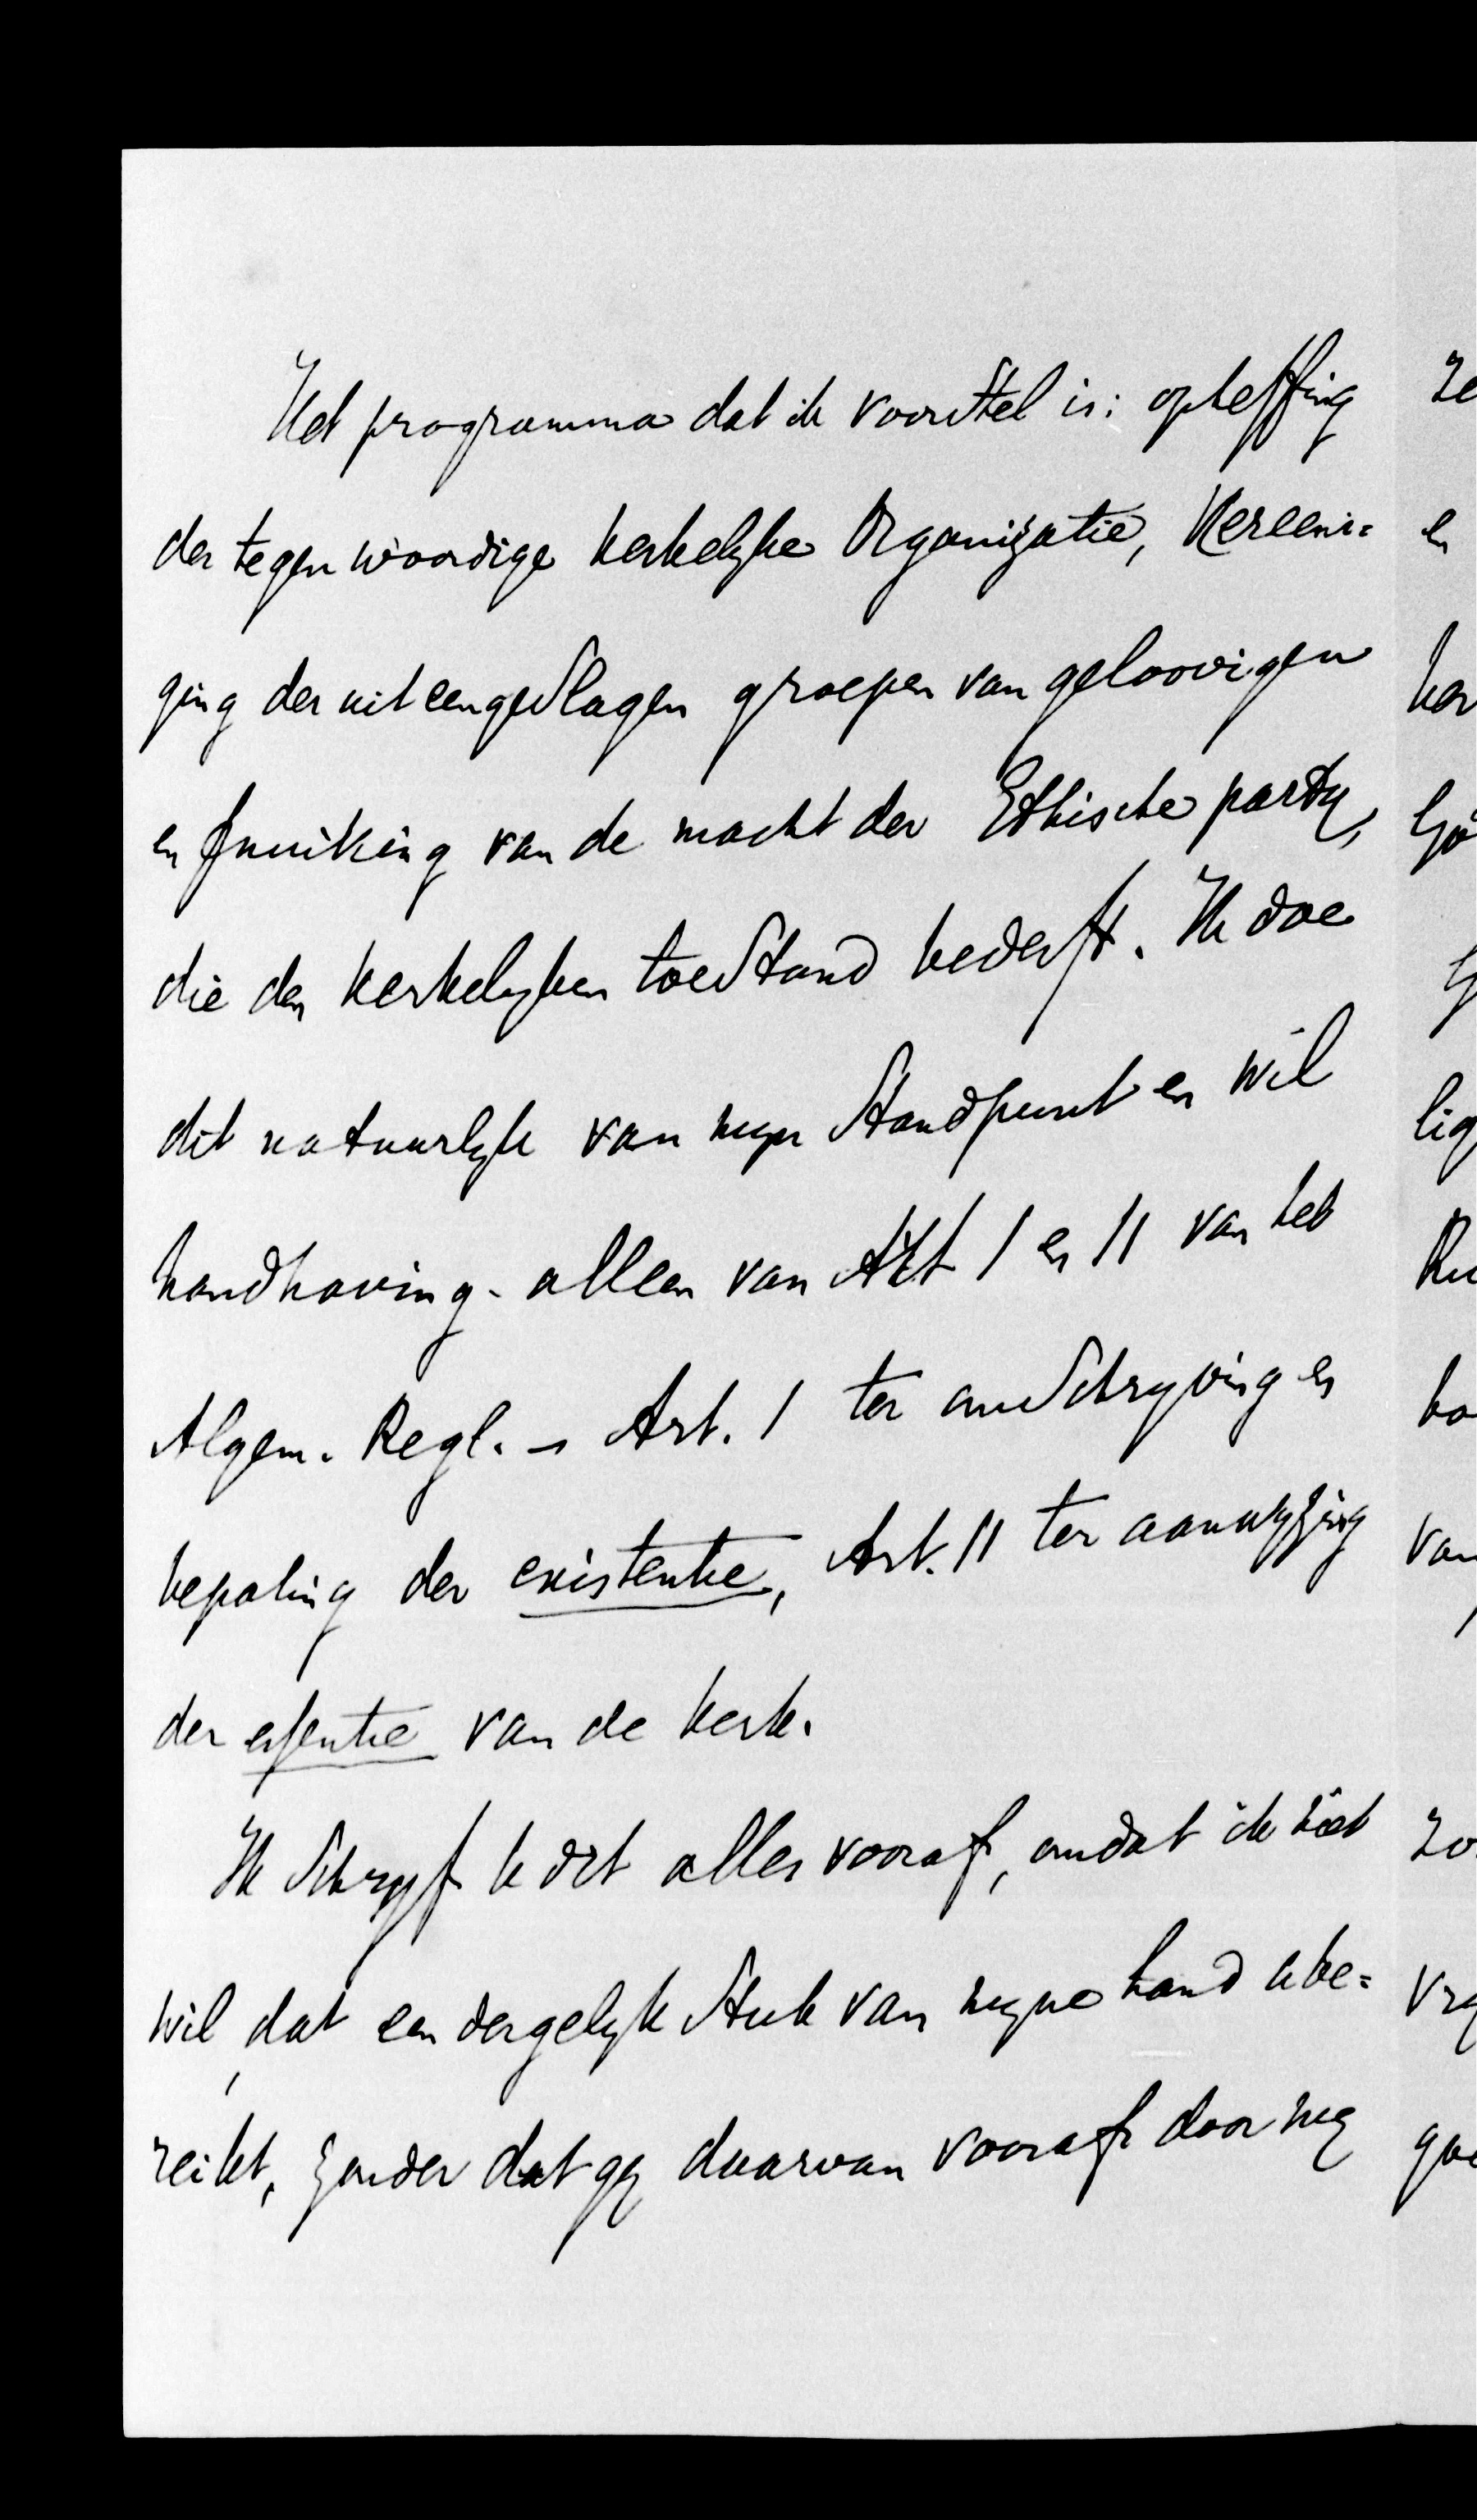 Het programma dat ik voorstel is: opheffing
der tegenwoordige kerkelyke Organizatie, Vereeni=
ging der uiteengeslagen groepen van geloovigen
en fnuiking van de macht der Ethische party,
die den kerkelyken toestand bederft. Ik doe
dit natuurlyk van myn standpunt en wil
handhaving - alleen van Art I en II van het
Algem. Regl. - Art. I ter omschryving en
bepaling der existentie, Art. II ter aanwyzing
der essentie van de kerk.
Ik schryf U dit alles vooraf, omdat ik niet
wil, dat een dergelyk stuk van myne hand U be=
reikt, zonder dat gy daarvan vooraf door my